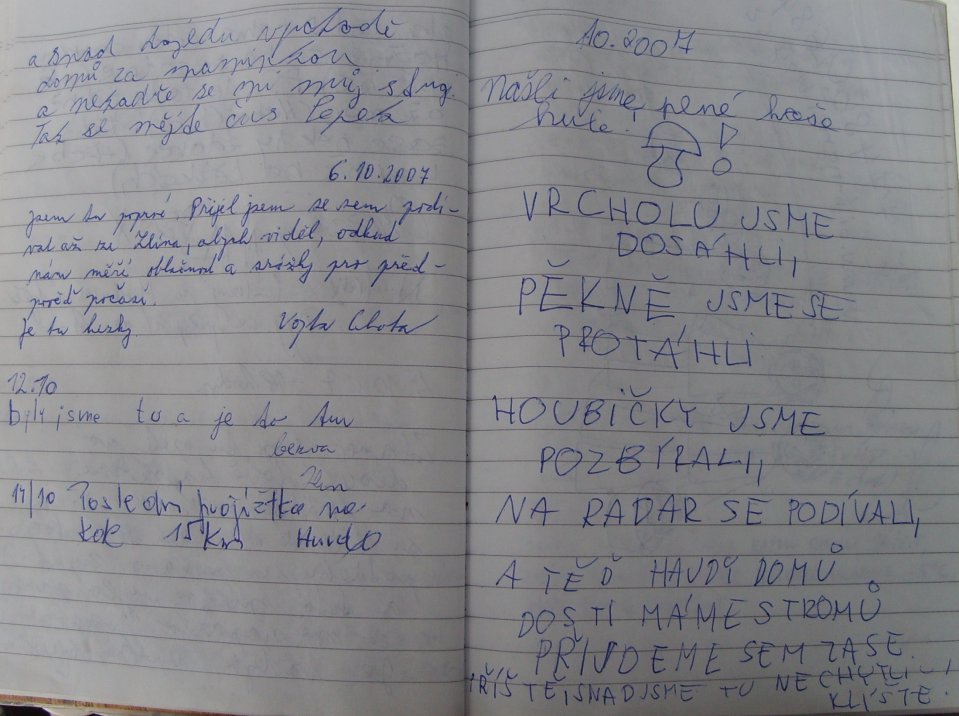 a snad dojedu vpohodě
domů za maminkou
a nezadře se mi můj
Tak se mějte čus Pepek
6.10.2007
Jsem tu poprvé. Přijel jsem se sem podí-
val až ze Zlína, abych viděl, odkud
nám měří oblačnost a srážky pro před-
pověď počasí.
Je tu hezky. Vojta
12.10
byly jsme tu a je to tu
bezva
14/10 Poslední projížťka na
kole 15km
10.2007
Našli jsme pené
hule!
VRCHOLU JSME
DOSÁHLI,
PĚKNĚ JSME SE
PROTÁHLI
HOUBIČKY JSME
POZBÍRALI,
NA RADAR SE PODÍVALI,
A TĚĎ HAUDY DOMŮ
DOSTI MÁME STROMŮ
PŘIJDEME SEM ZASE.
PŘÍŠTĚ, SNAD JSME TU NECHYTLI
KLÍŠTĚ.